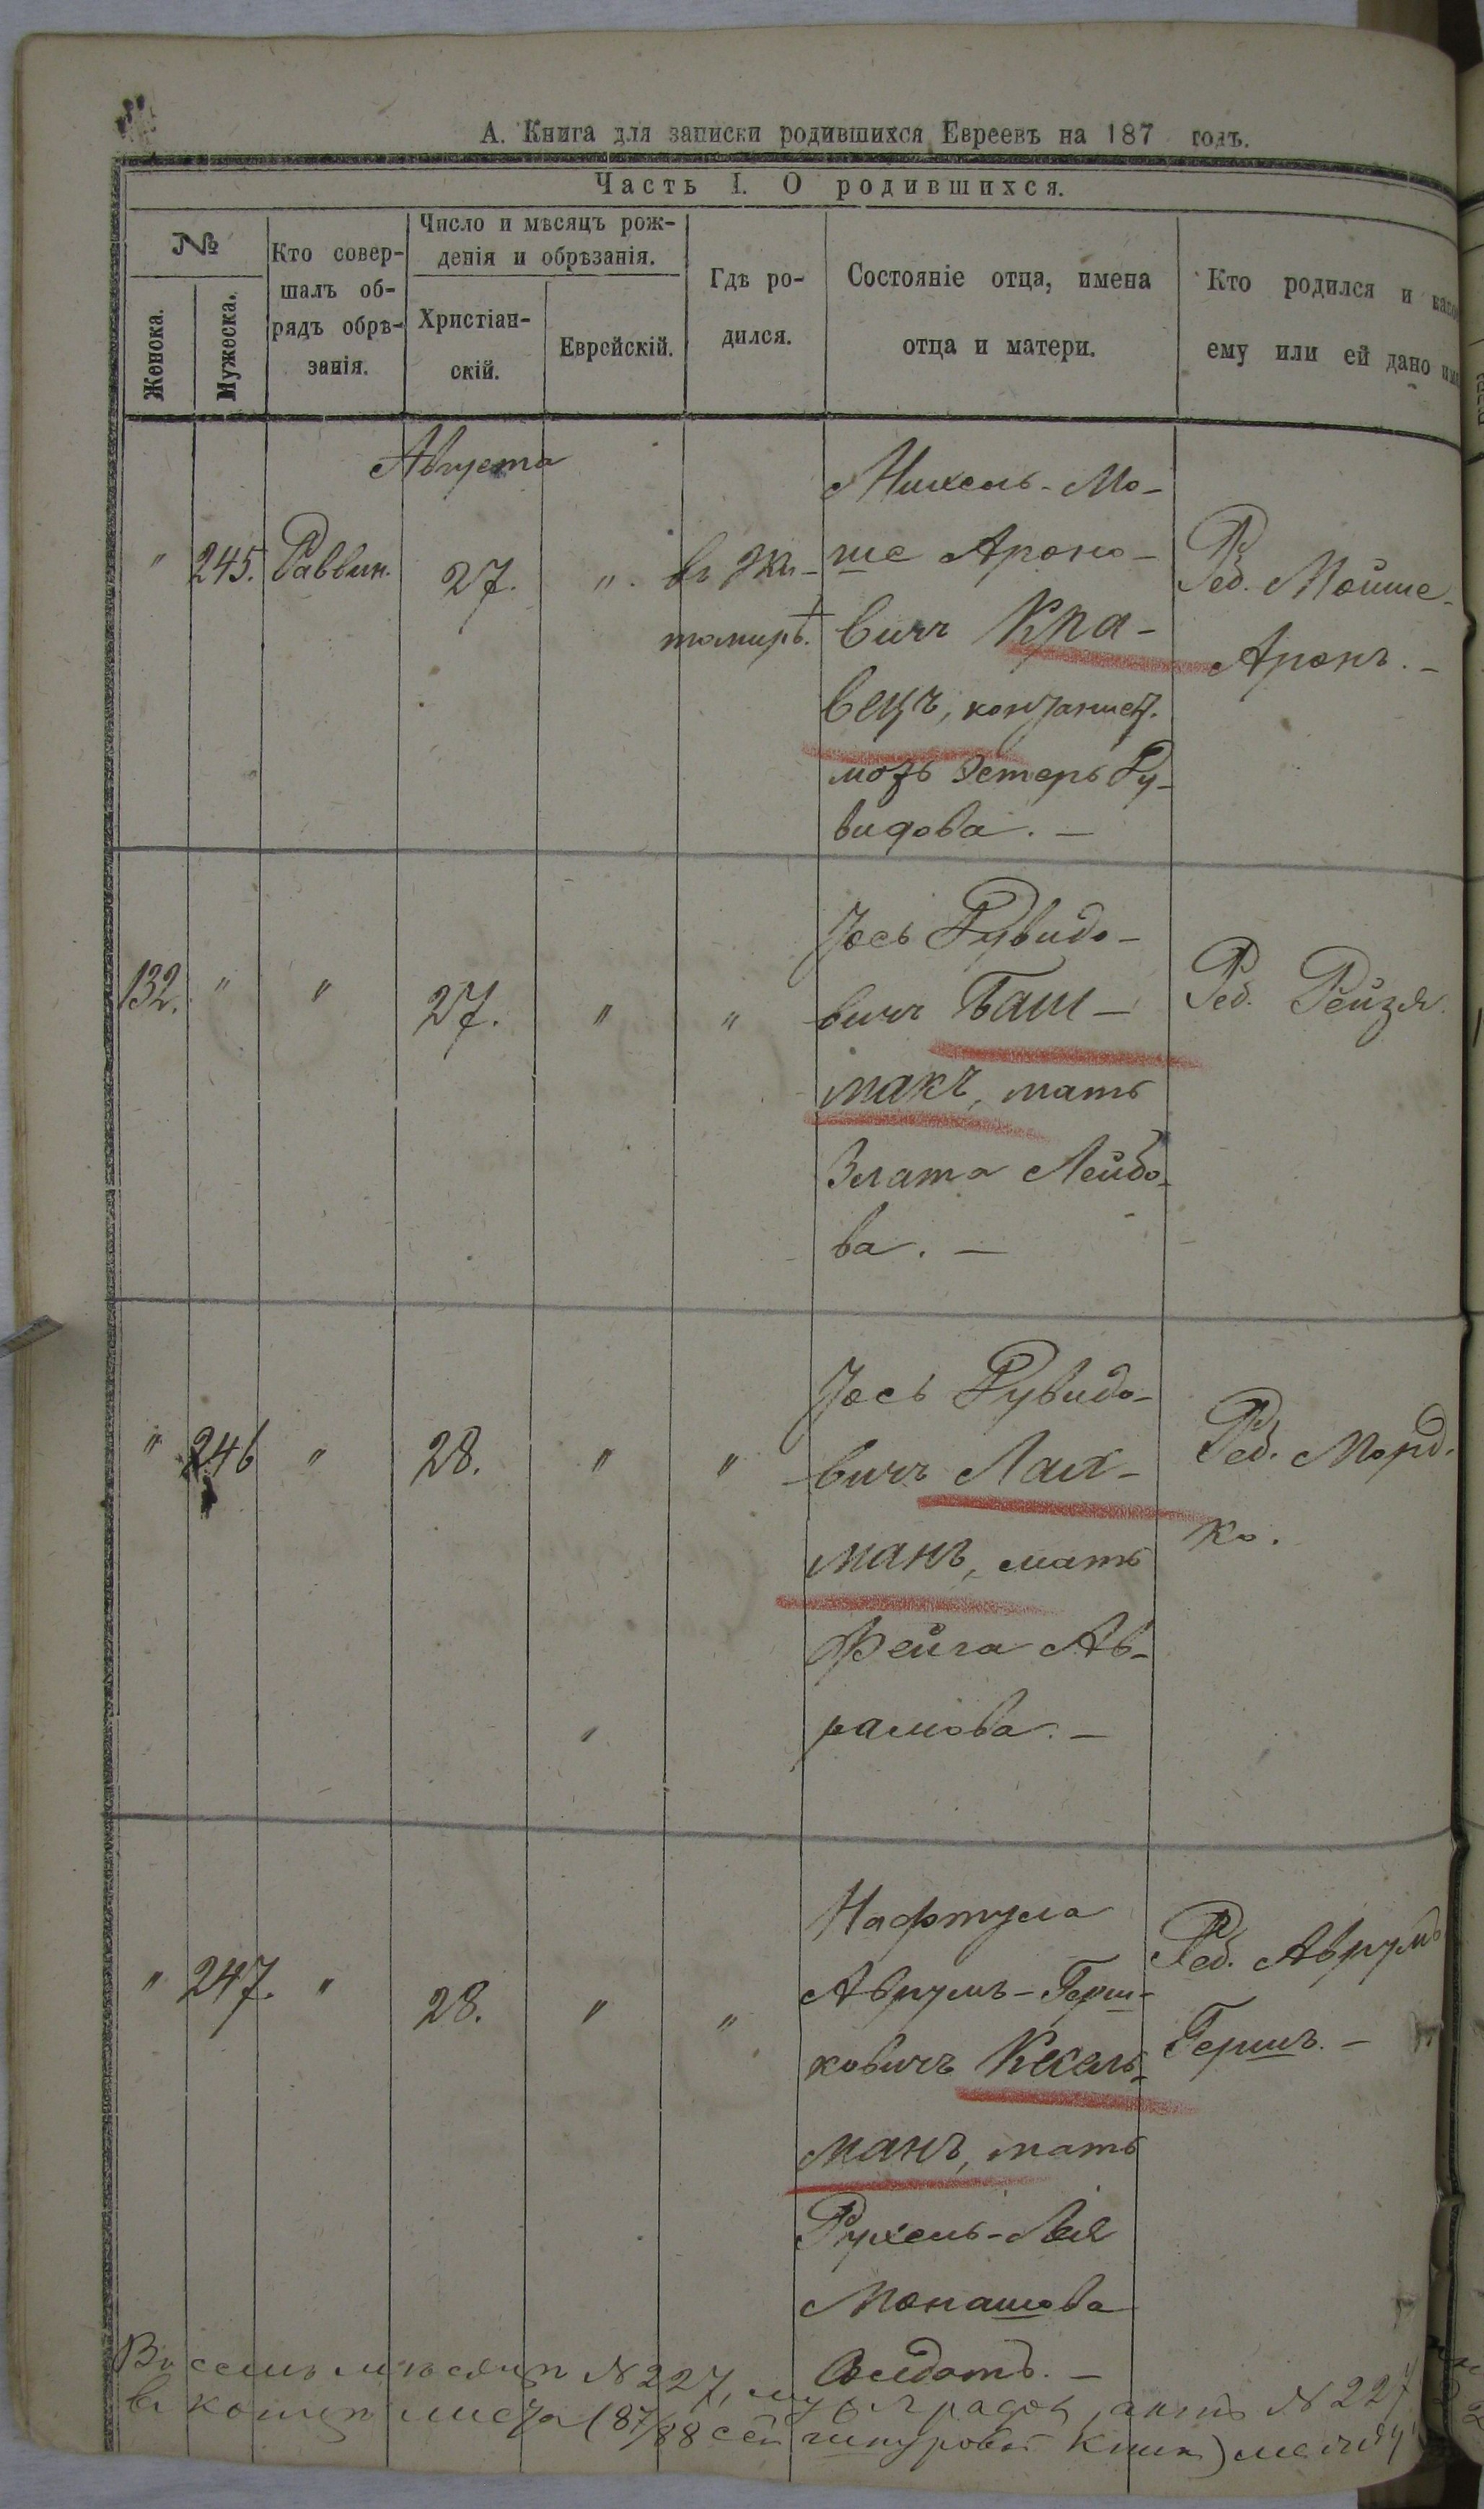 А. Книга для записки родившихся Евреевъ на 187 годъ.
Часть I. О родившихся.
№
Женска.
Мужеска.
Кто совер-
шалъ об-
рядъ обрѣ-
занія.
Число и мѣсяцъ рож-
денія и обрѣзанія.
Христіан-
скій.
Еврейскій.
Гдѣ ро-
дился.
Состояніе отца, имена
отца и матери.
Кто родился и
ему или ей дано
Августа
" 245. Раввин. 27. " въ Жи-
томирѣ.
Михель-Мо-
ше Ароно-
вичъ Кра-
вецъ,
Эстеръ Ру-
видова. —
Реб. Мойше-
Аронъ. —
132. " " 27. " "
Іось Рувидо-
вичъ Баш-
макъ, мать
Злата Лейбо-
ва. —
Реб. Рейзя.
" 246 " 28. " "
Іось Рувидо-
вичъ Лах-
манъ, мать
Фейга Ав-
рамова. —
Реб. Морд-
ко.
" 247. " 28. " "
Нафтула
Аврумъ-Герш-
ковичъ
манъ, мать
Рухель-Лея
Монашова
Реб. Аврумъ
Гершъ. —
Въ семъ мѣсяцѣ № 227, № 227
въ концѣ (87/88 шнуровой книги)